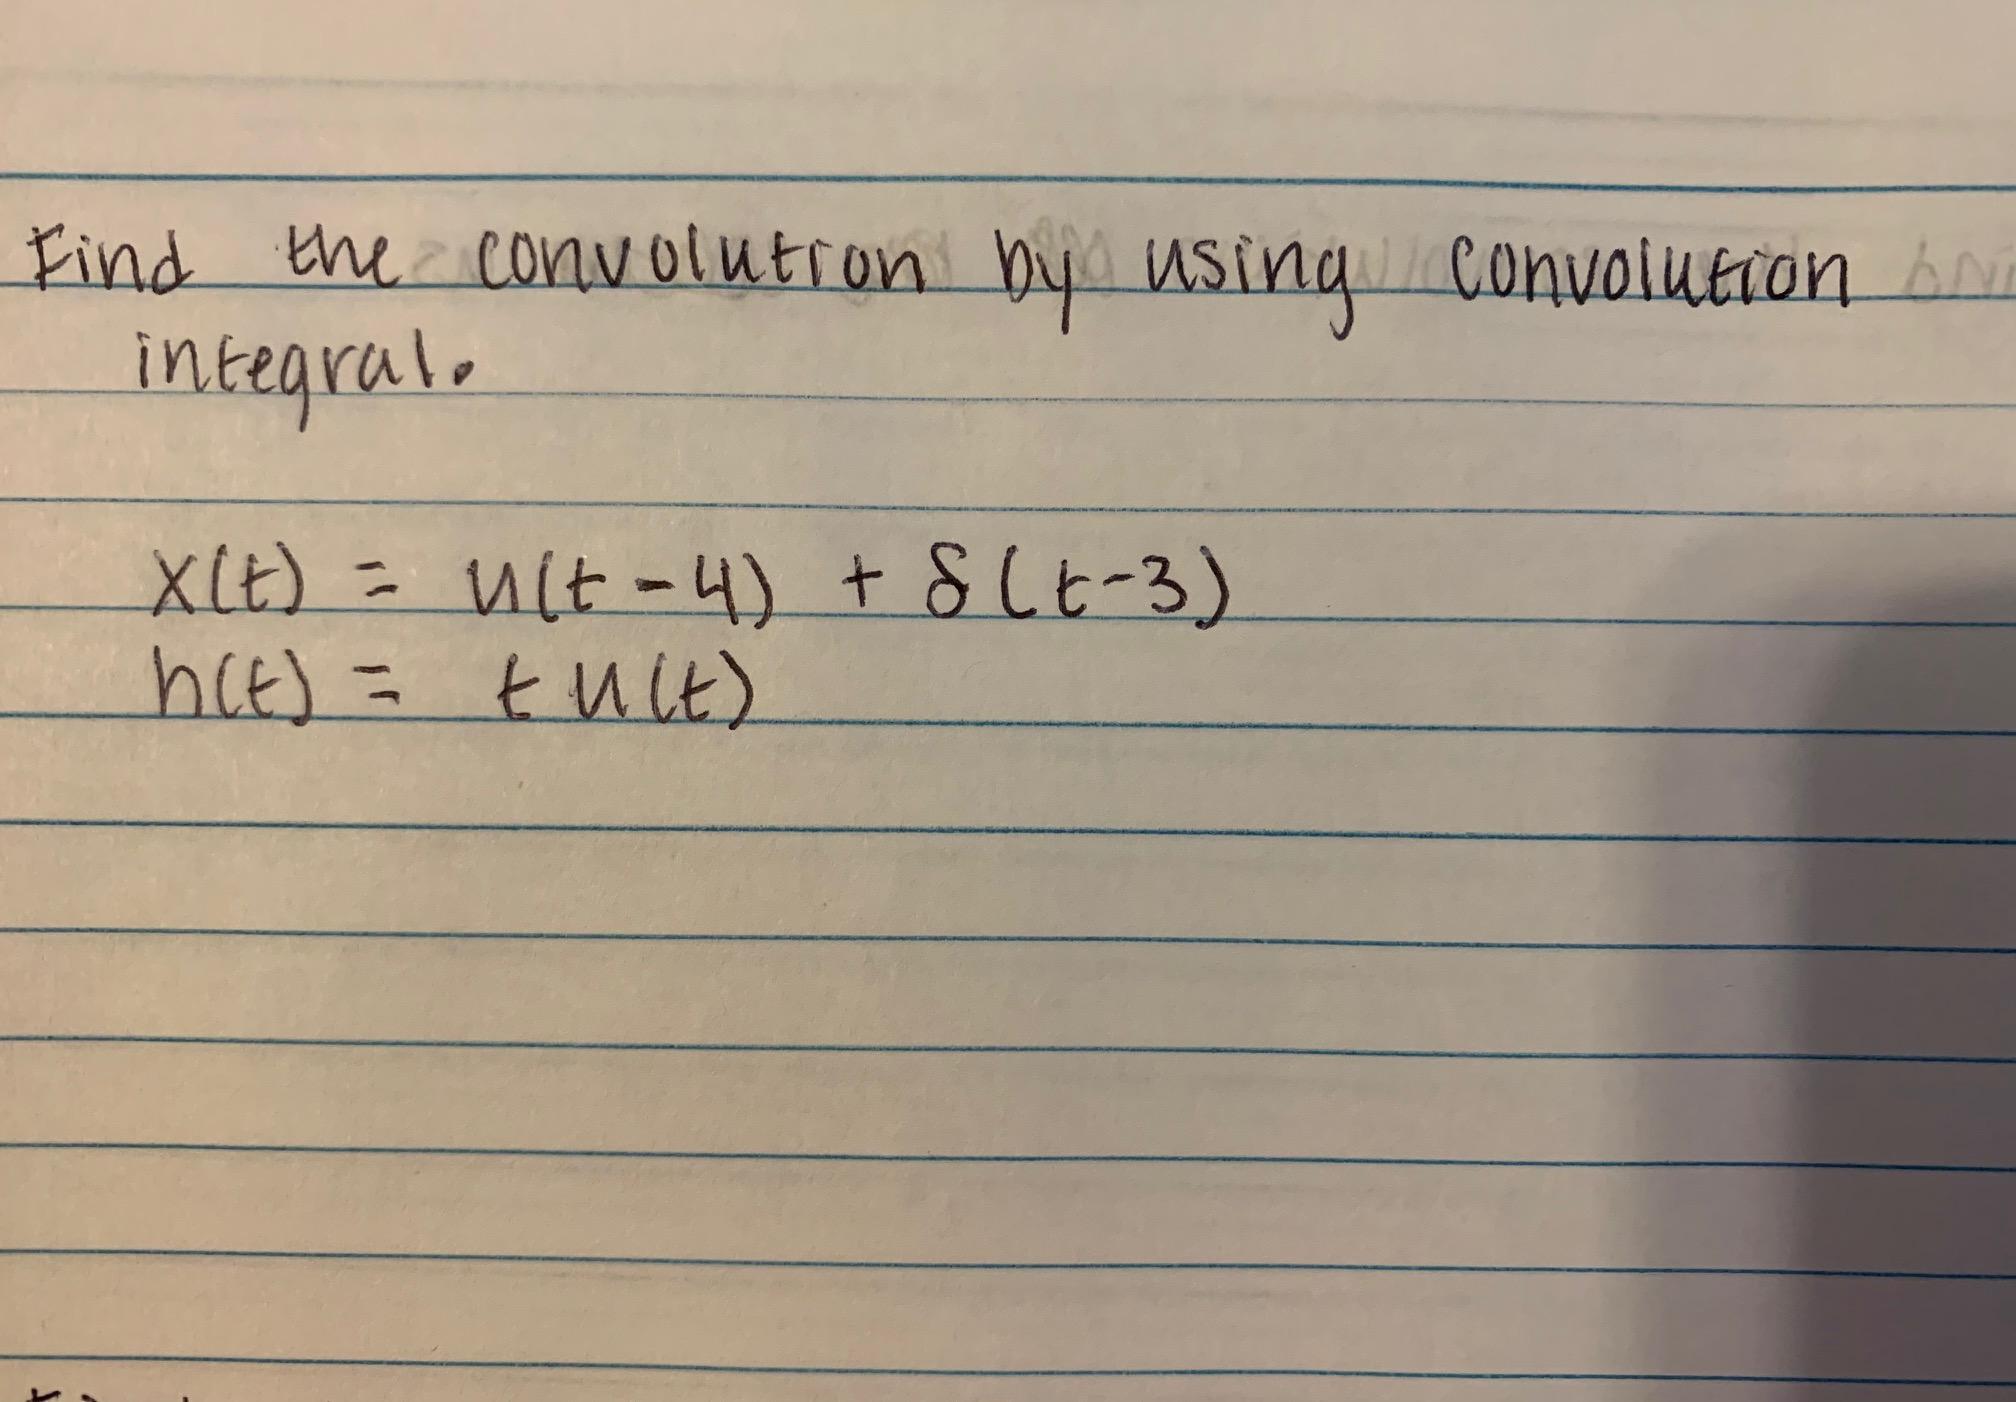 Find the convolution by using convolution
integral.
x(t) = u(t-4) + δ(t-3)
h(t) = t u(t)